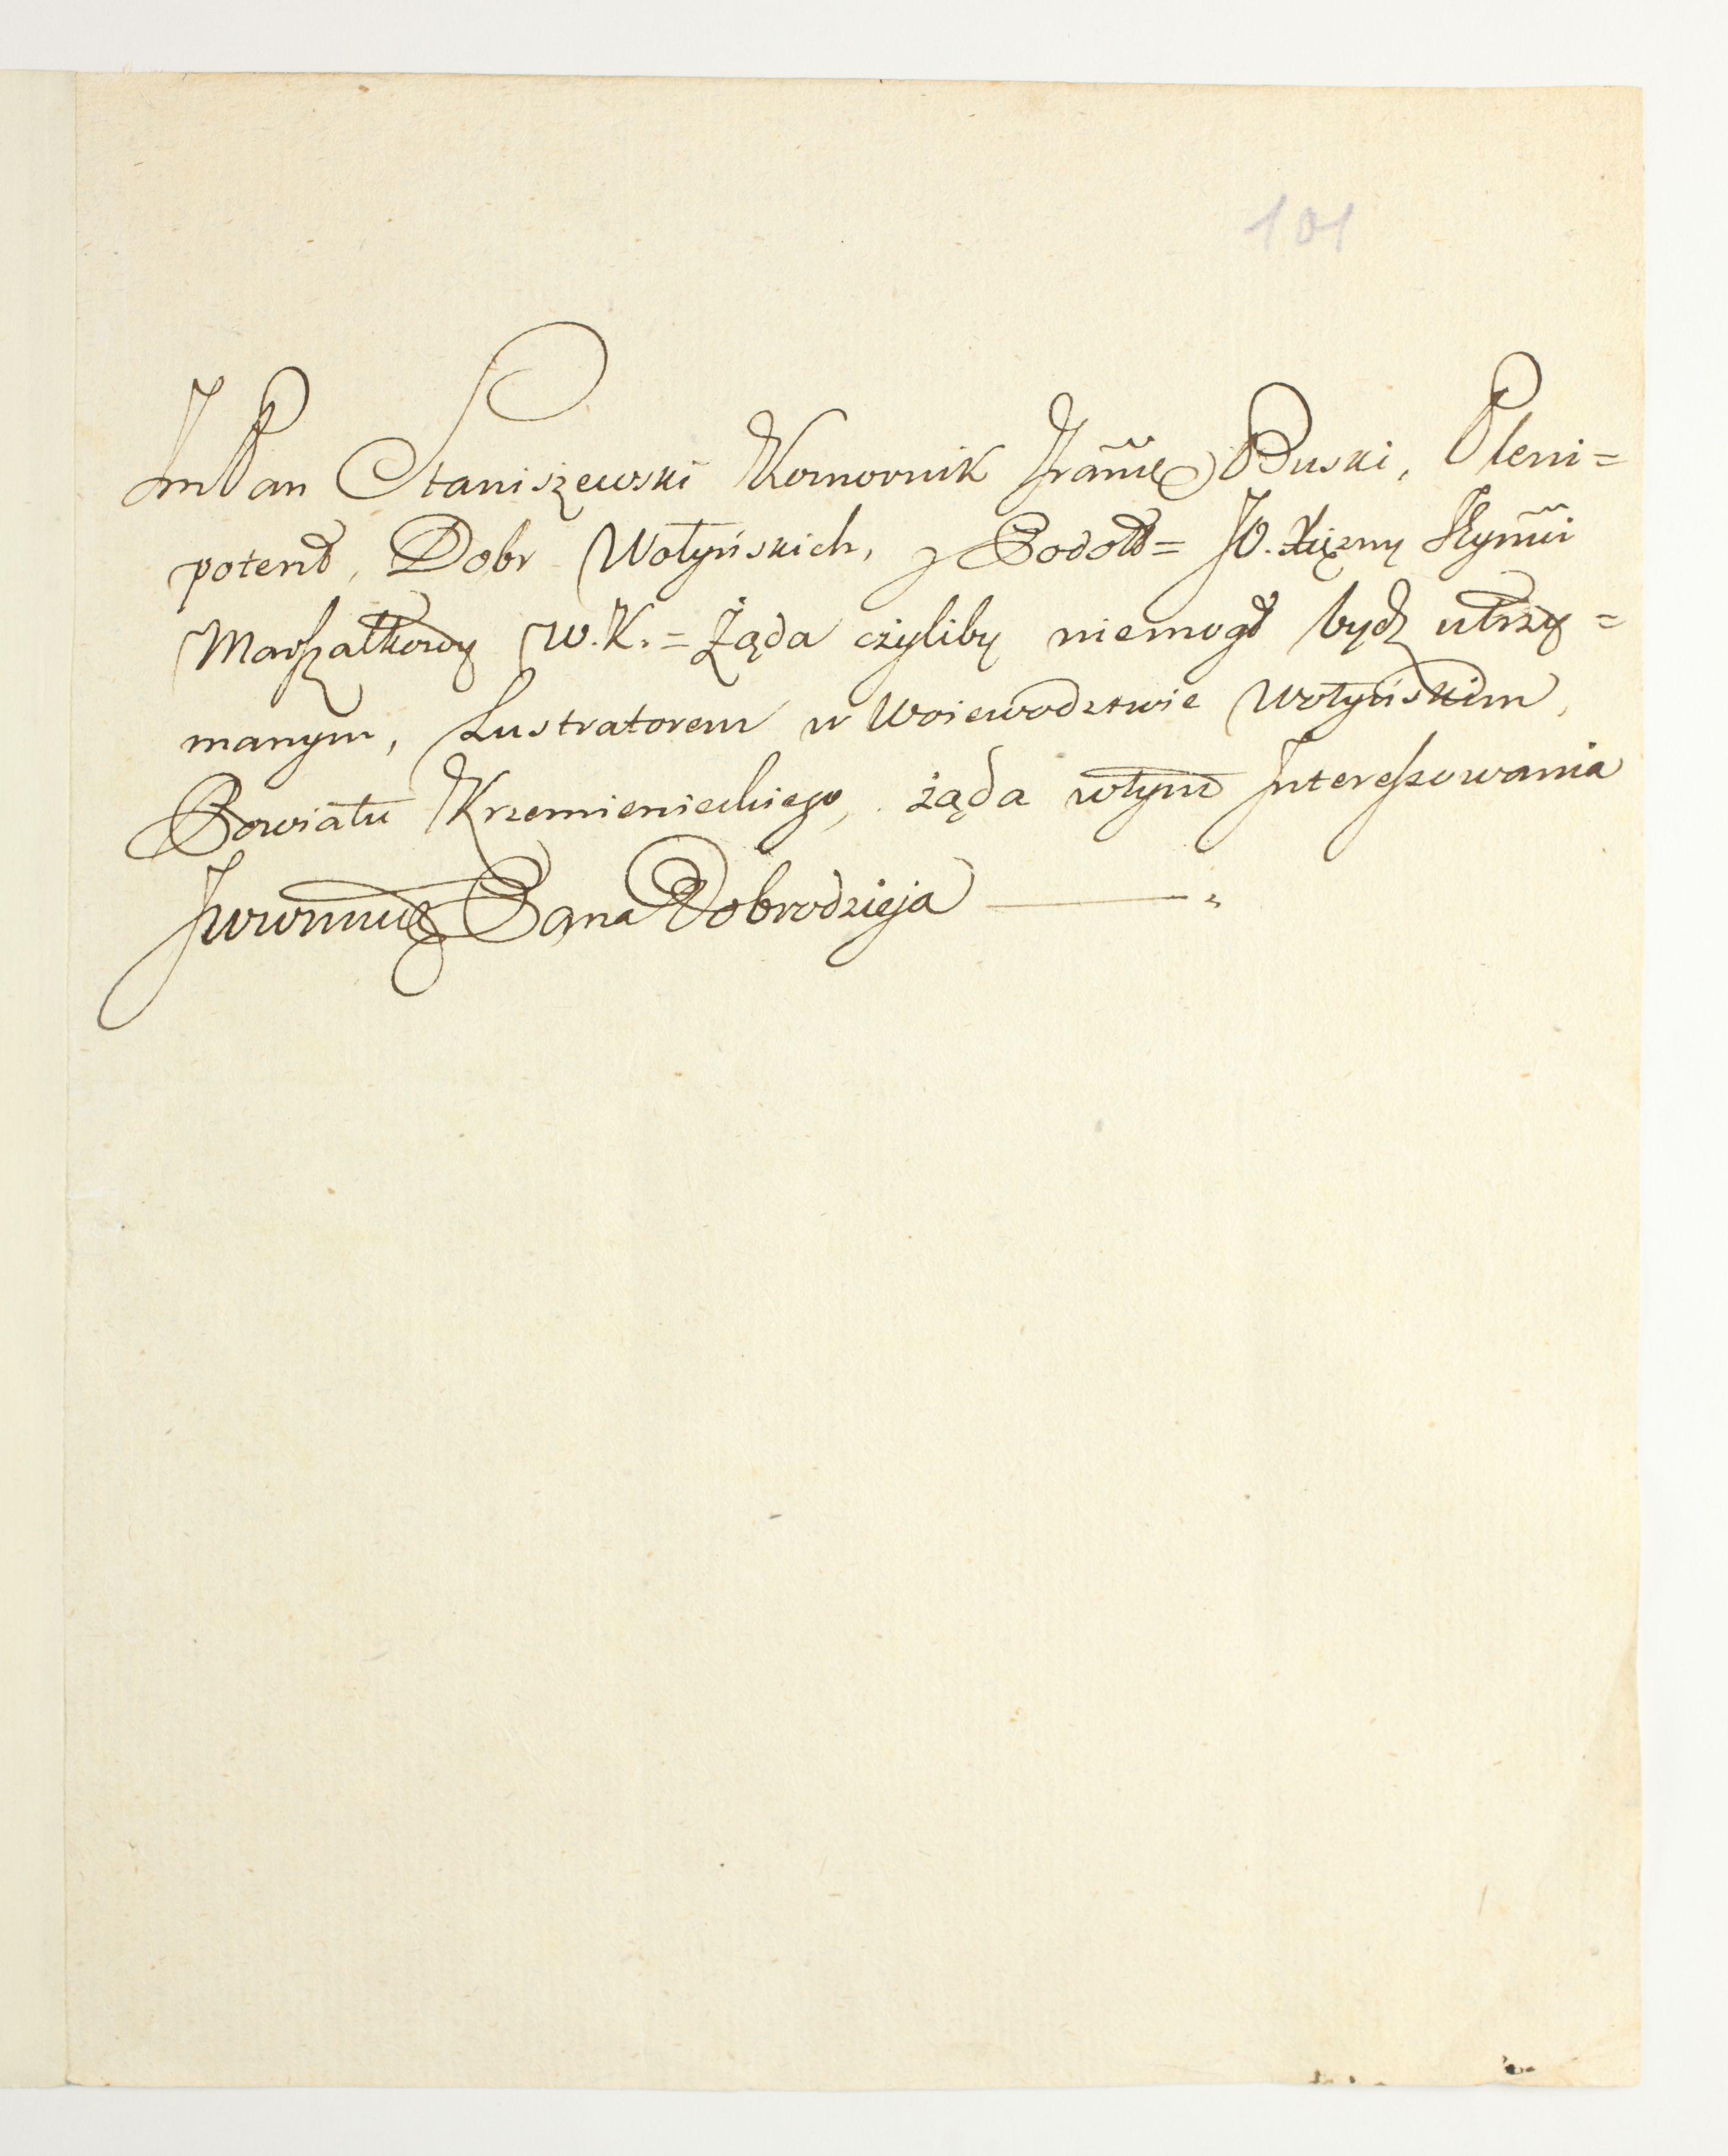 101
Jm Pan Staniszewski Komornik Buski, Pleni=
potent, Dobr Wołyńskich, y Podol= JO. Xiężny
Marszałkowy W. K. = Żąda czyliby niemogł bydź utrzy=
manym, Lustratorem w Woiewodztwie Wołyńskim,
Powiatu Krzemienieckiego, żąda wtym Interessowania
Pana Dobrodzieja